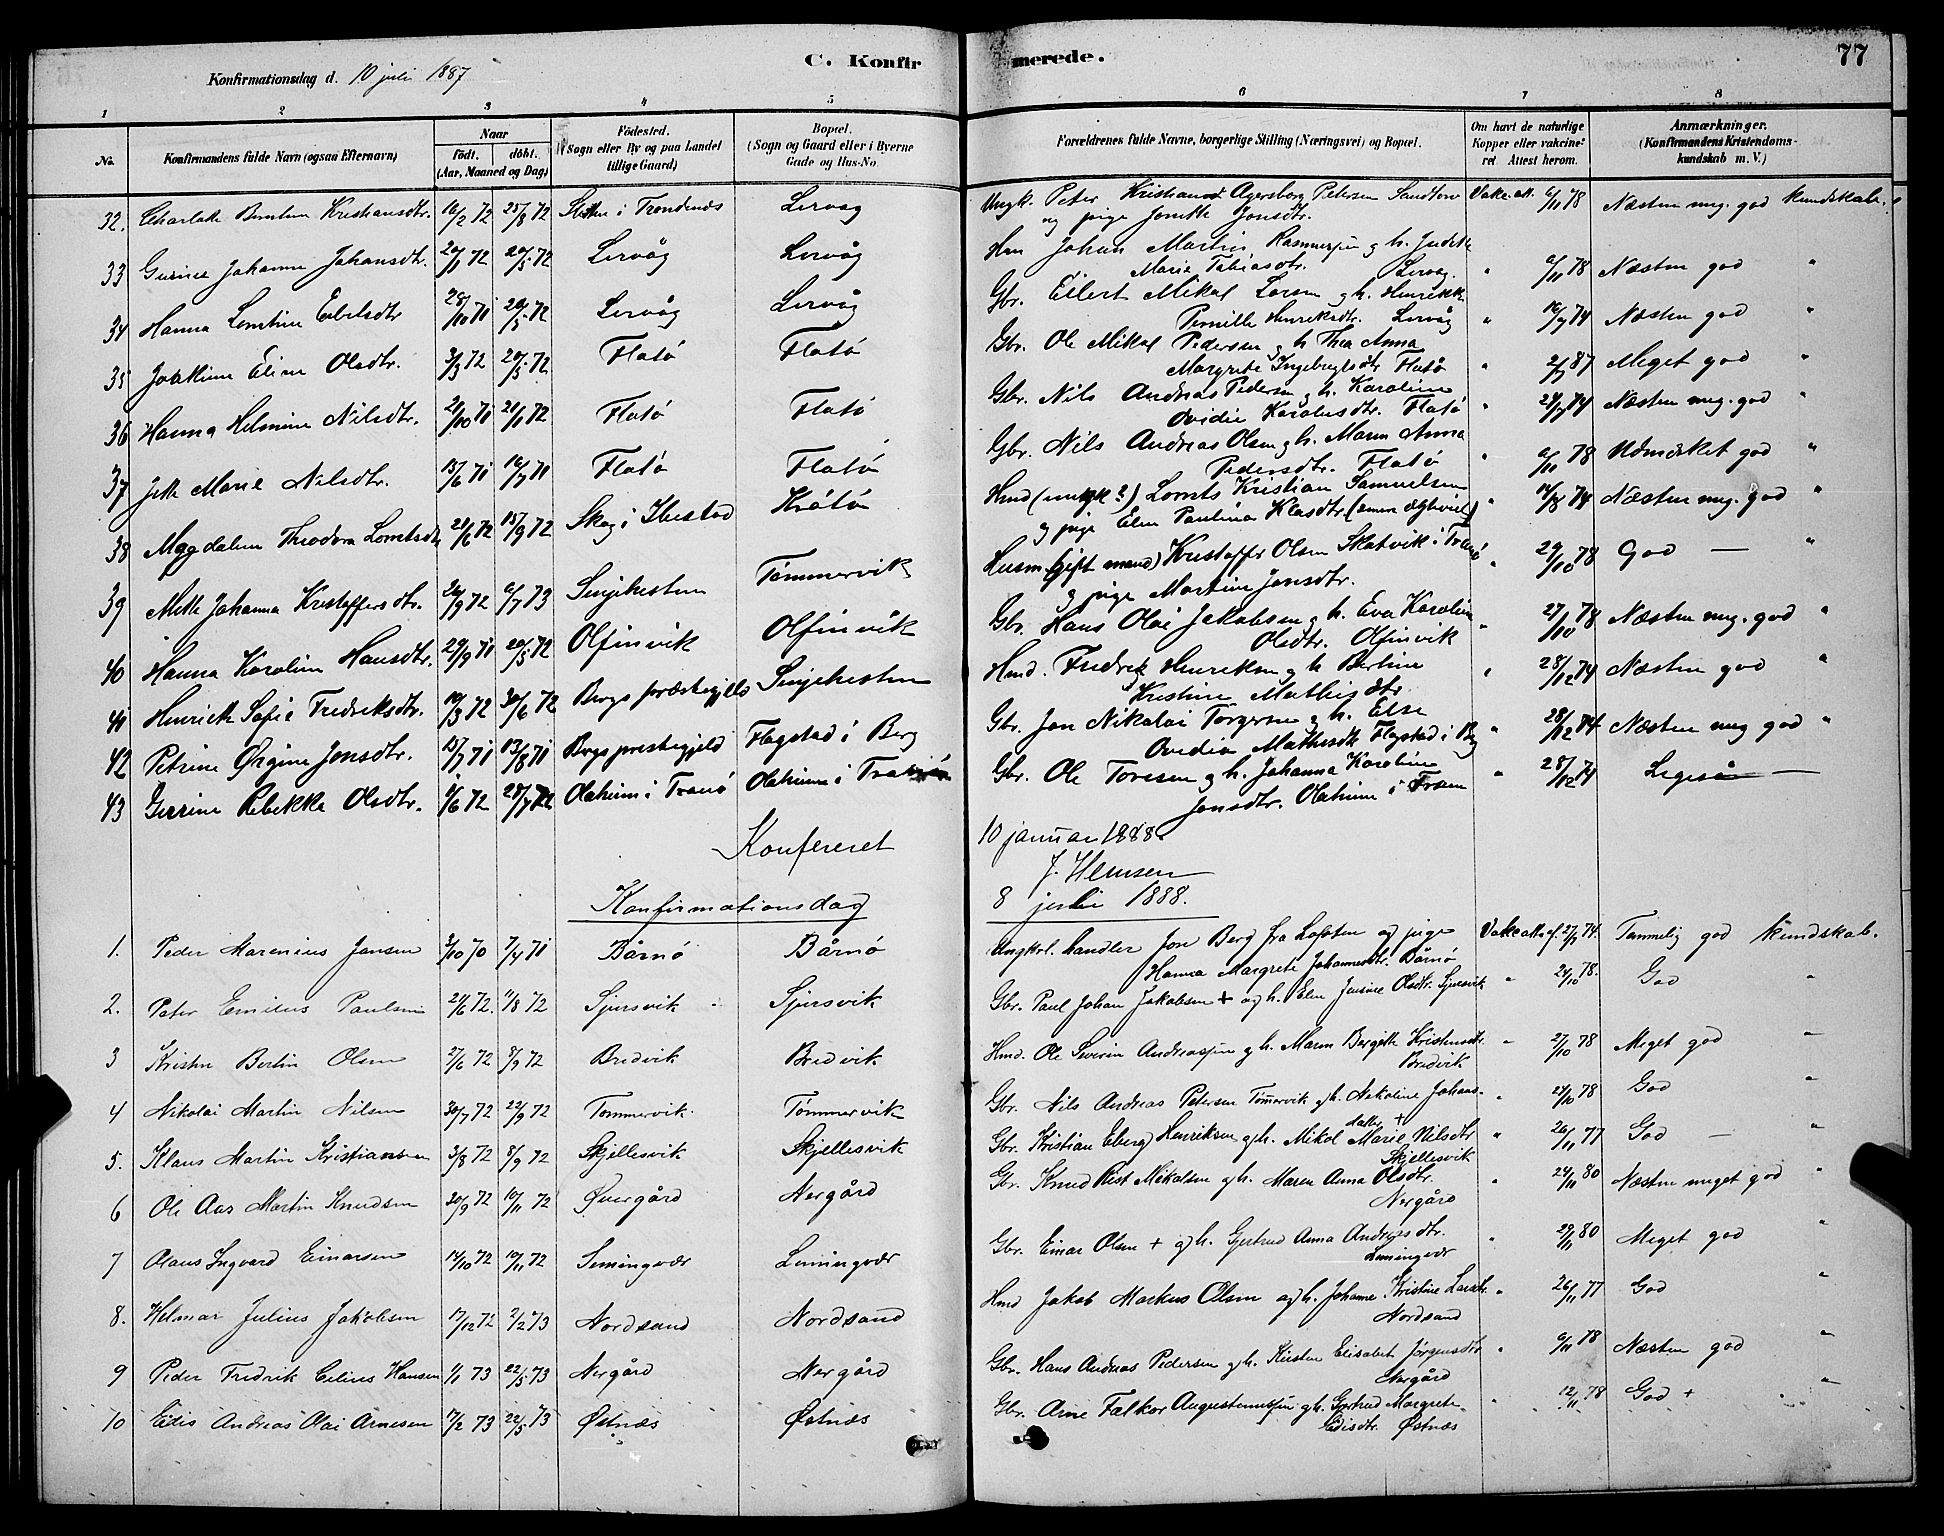 Konfirmationsdag d. 10 juli 1887
C. Konfirmerede.
77
1 2 3 4 5 6 7 8
No.
Konfirmandens fulde Navn (ogsaa Efternavn)
Naar
födt. döbt.
(Aar, Maaned og Dag)
Födested.
(Sogn eller By og paa Landet
tillige Gaard)
Bopæl.
(Sogn og Gaard eller i Byerne
Gade og Hus-No.
Forældrenes fulde Navne, borgerlige Stilling (Næringsvei) og Bopæl.
Om havt de naturlige
Kopper eller vakcine-
ret. Attest herom.
Anmærkninger.
(Konfirmandens Kristendoms-
kundskab m. V.)
32. Kristiansdtr. 16/2 72 25/8 72 i Trondenæs Lervåg Ungk. Peter Petersen Vakc. att. 6/11 78 Næsten meg. god kundskab
og pige Jonsdtr.
33 Gurine Johanna Johansdtr. 20/1 72 20/5 72 Lervåg Lervåg Johan Martin Rasmussen g h.
Marie Tobiasdtr. Lervåg. " 6/11 78 Næsten god "
34 Hanna Eilertsdtr 28/10 71 20/5 72 Lervåg Lervåg Gbr. Eilert Mikal Larsen g h. Henrikke
Pernille Henriksdtr. Lervåg " 16/7 74 Næsten god "
35 Joakime Eline Olsdtr. 3/3 72 20/5 72 Flatö Flatö Gbr. Ole Mikal Pedersen g h Thea Anna
Margrete Ingebrigtsdtr Flatö " 2/7 87 Meget god "
36 Hanna Helmine Nilsdtr. 21/10 71 21/1 72 Flatö Flatö Gbr. Nils Andreas Pedersen g h. Karoline
Ovidie Karolusdtr. Flatö " 28/7 74 Næsten meg. god "
37 Jette Marie Nilsdtr. 13/6 71 16/7 71 Flatö Flatö Gbr. Nils Andreas Olsen g h. Maren Anna
Pedersdtr. Flatö " 6/11 78 Udmærket god "
38 Magdalena Theodora 21/6 72 15/9 72 Skog i Ibestad Kråtö Hmd (ungk?) Kristian Samuelsen
og pige Elen Paulina Klasdtr " 14/8 74 Næsten meg. god "
39 Mette Johanna Kristoffersdtr. 26/9 72 6/7 73 Sinjehesten Tömmervik Husm (gift mand) Kristoffer Olsen Skatvik i Tranö
og pige Martine Jonsdtr. " 29/10 78 God — "
40 Hanna Karoline Hansdtr. 27/9 71 20/5 72 Olfinvik Olfinvik Gbr. Hans Olai Jakobsen g h. Eva Karoline
Olsdtr. Olfinvik " 27/10 78 Næsten meg. god "
41 Henriette Sofie Fredriksdtr. 10/3 72 30/6 72 Bergs præstegjeld Sinjehesten Hmd. Fredrik Henriksen g h Bertine
Kristine Mathisdtr. " 28/12 74 Næsten god "
42 Petrine Ørgine Jonsdtr. 15/7 71 13/8 71 Bergs prestegjeld Flagstad i Berg Gbr. Jon Nikolai Torgersen g h. Else
Ovidia Mathisdtr Flagstad i Berg " 28/12 74 Næsten meg god "
43 Gurine Rebekka Olsdtr. 2/6 72 28/7 72 i Tranö i Tranö Gbr. Ole Toresen g h. Johanna Karoline
Jonsdtr. i Tranö " 28/12 74 Ligeså —
Konfereret 10 januar 1888.
J. Hemsen
Konfirmationsdag 8 juli 1888.
1. Peder Marenius Jansen 3/10 70 7/4 71 Bårnö Bårnö Ungkrl. handler Jon Berg fra Lofoten og pige
Hanna Margrete Johannesdtr. Bårnö Vakc. att. af. 27/7 74. Temmelig god kundskab.
2. Peter Emilus Paulsen 21/6 72. 11/8 72 Sjursvik Sjursvik Gbr. Paul Johan Jakobsen + og h. Elen Jensine Olsdtr. Sjursvik " 24/10 78. God "
3 Kristen Bertin Olsen 27/6 72 8/9 72 Bredvik Bredvik Hmd. Ole Severin Andreassen g h. Maren Bergitte Kristensdtr.
Bredvik " 27/10 78 Meget god "
4 Nikolai Martin Nilsen 30/7 72 22/9 72 Tömmervik Tömmervik Gbr. Nils Andreas Petersen Tömmervik g h. Nikoline Johans-
datter + " 27/10 78 God "
5. Klaus Martin Kristiansen 3/8 72 8/9 72 Skjellesvik Skjellesvik Gbr. Kristian Eberg Henriksen g h. Mikal Marie Nilsdtr
Skjellesvik " 26/11 77 God — "
6 Ole Aas Martin Knudsen 20/9 72 10/11 72 Øvergård Nergård Gbr. Knud Rist Mikalsen g h. Maren Anna Olsdtr.
Nergård " 24/11 80 Næsten meget god "
7 Olaus Ingvard Einarsen 14/10 72 10/11 72 Lemingvær Lemingvær Gbr. Einar Olsen + g h. Gjertrud Anna Andreasdtr.
Lemingvær " 29/11 80 Meget god "
8. Helmar Julius Jakobsen 17/12 72 2/2 73 Nordsand Nordsand Hmd Jakob Markus Olsen og h. Johanne Kristine Larsdtr.
Nordsand " 26/11 77 God "
9 Peder Fredrik Celius Hansen 1/1 73 22/5 73 Nergård Nergård Gbr. Hans Andreas Pedersen g h. Kirsten Elisabet Jörgensdtr
Nergård " 6/11 78 Næsten god "
10 Edis Andreas Olai Arnesen 17/2 73 22/5 73 Østnæs Østnæs Gbr. Arne Falkor Augustinussen g h. Gjertrud Margrete
Edisdtr. Østnæs " 12/11 78 God + "